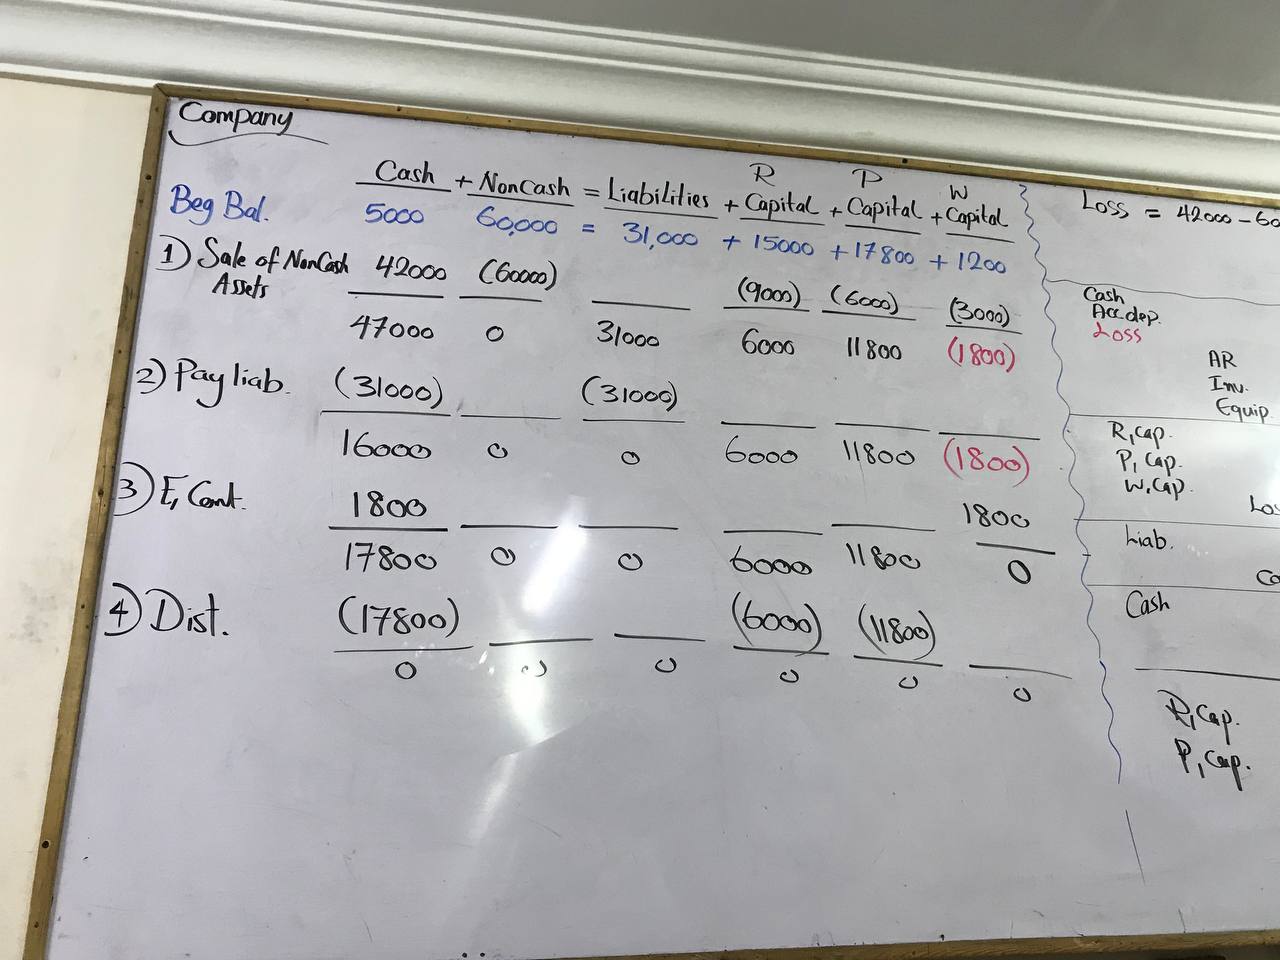 Company
R P W
Cash + NonCash = Liabilities + Capital + Capital + Capital
Beg Bal. 5000 60,000 = 31,000 + 15000 + 17800 + 1200
1) Sale of NonCash 42000 (60000) (9000) (6000) (3000)
Assets
47000 0 31000 6000 11800 (1800)
2) Pay liab. (31000) (31000)
16000 0 0 6000 11800 (1800)
3) 1800 1800
17800 0 0 6000 11800 0
4) Dist. (17800) (6000) (11800)
0 0 0 0 0 0
Loss = 42000 - 60
Cash
Acc.dep.
Loss
AR
Inv.
Equip.
R, cap.
P, cap.
W, cap.
Liab.
Cash
R, cap.
P, cap.